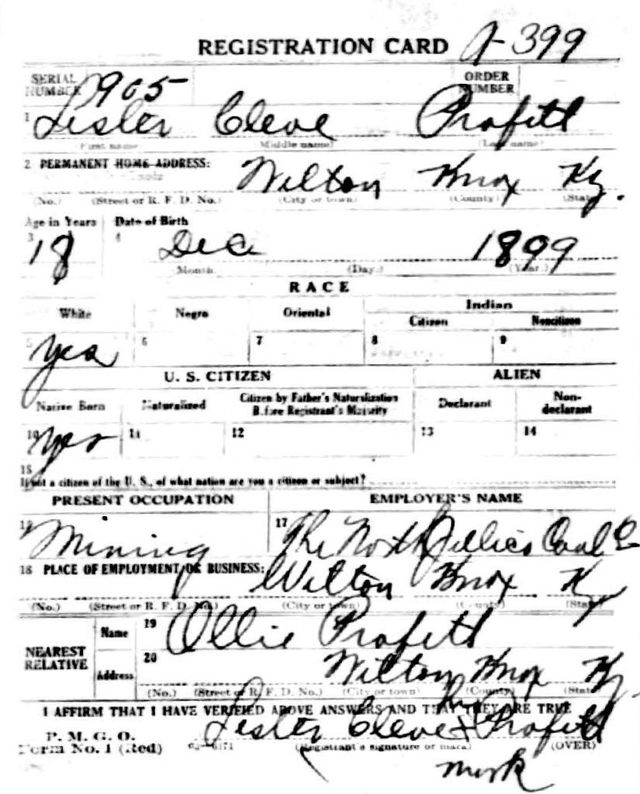 REGISTRATION CARD A-399
SERIAL NUMBER 905 ORDER NUMBER
1 Lester Cleve Profitt
First name Middle name) (Last name)
2 PERMANENT HOME ADDRESS: Wilton Knox Ky.
(No.) (Street or R. F. D. No.) (City or town) (County) (State)
Age in Years Date of Birth
3 18 4 Dec 1899
Month (Day.) (Year.)
RACE
White Negro Oriental Indian
Citizen Noncitizen
5 yes 6 7 8 9
U. S. CITIZEN ALIEN
Native Born Naturalized Citizen by Father's Naturalization Before Registrant's Majority Declarant Non-declarant
10 yes 11 12 13 14
15
If not a citizen of the U. S., of what nation are you a citizen or subject?
PRESENT OCCUPATION EMPLOYER'S NAME
16 Mining 17 The North Jellico Coal Co
18 PLACE OF EMPLOYMENT OR BUSINESS: Wilton Knox Ky
(No.) (Street or R. F. D. No.) (City or town) (County) (State)
NEAREST RELATIVE Name 19 Ollie Profitt
Address 20 Wilton Knox Ky
(No.) (Street or R. F. D. No.) (City or town) (County) (State)
I AFFIRM THAT I HAVE VERIFIED ABOVE ANSWERS AND THAT THEY ARE TRUE
P. M. G. O. Lester Cleve x Profitt
Form No. 1 (Red) (Registrant's signature or mark) (OVER)
mark